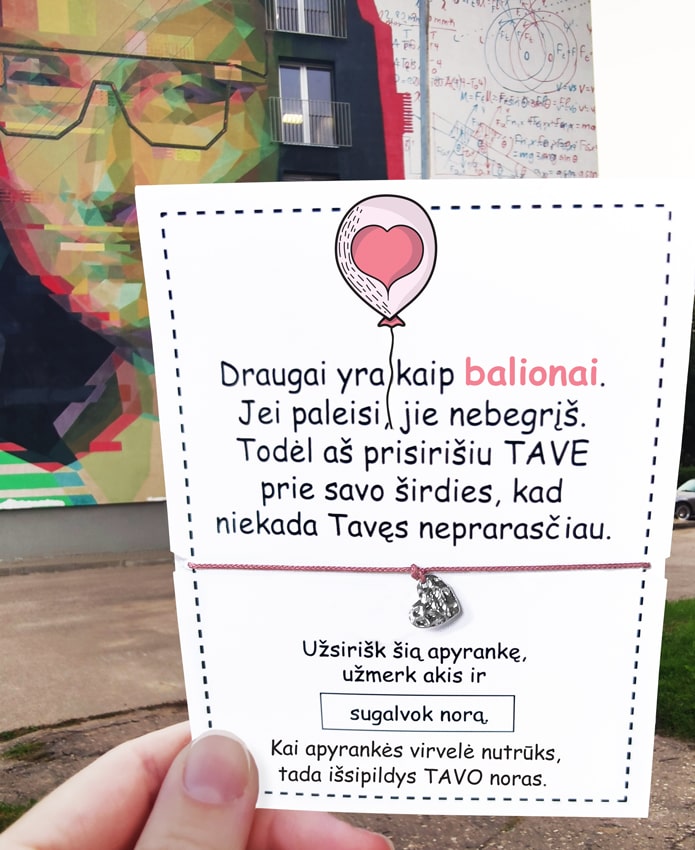 Draugai yra kaip balionai.
Jei paleisi, jie nebegrįš.
Todėl aš prisirišiu TAVE
prie savo širdies, kad
niekada Tavęs neprarasčiau.
Užsirišk šią apyrankę,
užmerk akis ir
sugalvok norą.
Kai apyrankės virvelė nutrūks,
tada išsipildys TAVO noras.